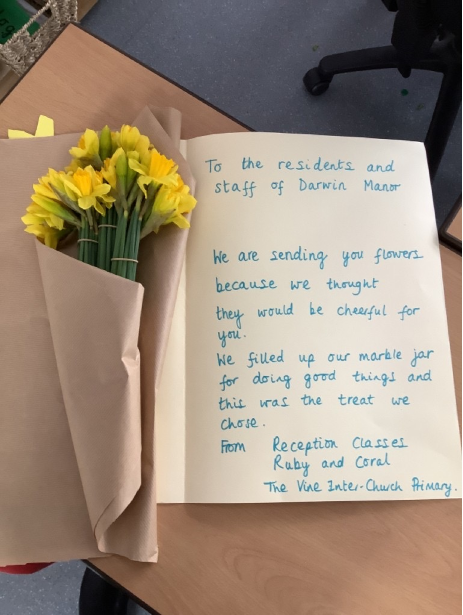 To the residents and
staff of Darwin Manor
We are sending you flowers
because we thought
they would be cheerful for
you.
We filled up our marble jar
for doing good things and
this was the treat we
chose.
From Reception Classes
Ruby and Coral
The Vine Inter-Church Primary.